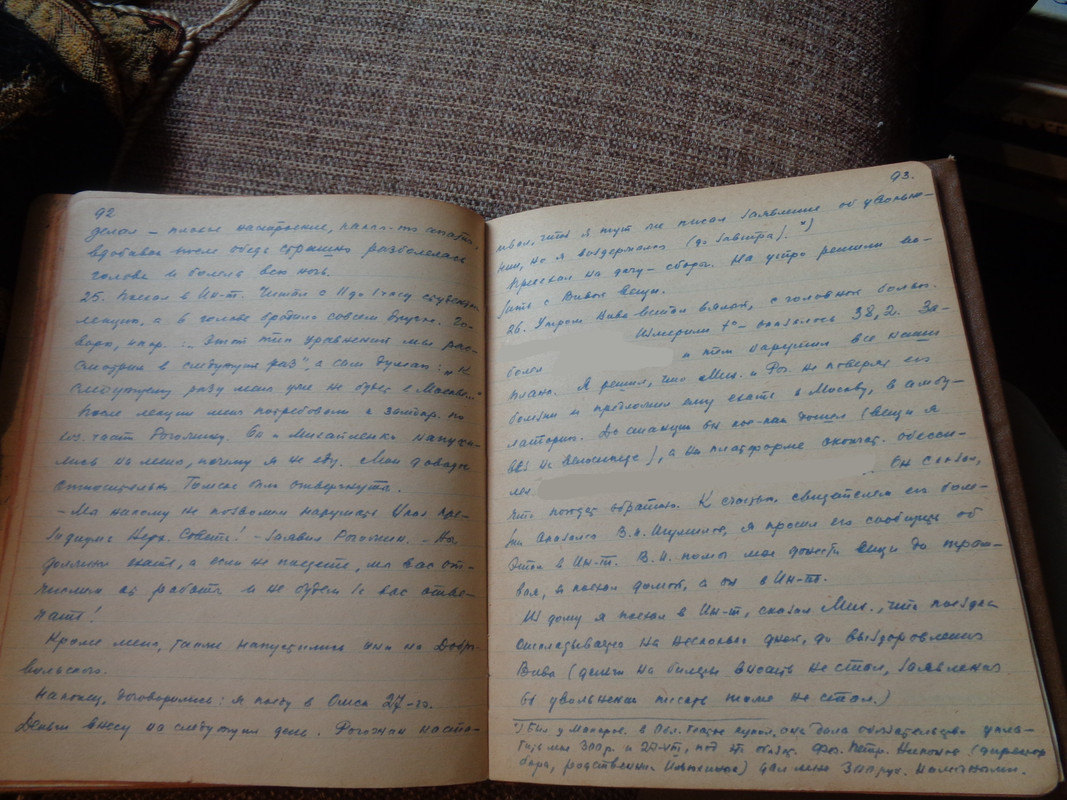 92
делал – плохое настроение,
вдобавок после обеда страшно разболелась
голова и болела всю ночь.
25. Поехал в Ин-т. Читал с 11 до 1 часу студентам
лекцию, а в голове бродило совсем другое. Го-
ворю, напр.: – Этот тип уравнения мы рас-
смотрим в следующий раз", а сам думаю: „К
следующему разу меня уже не будет в Москве..."
После лекции меня потребовали к замдир. по
хоз. части Рогожину. Он и напусти-
лись на меня, почему я не еду. Мои доводы
относительно Томска были отвергнуты.
– Мы никому не позволим нарушать Указ Пре-
зидиума Верх. Совета! – заявил Рогожин. – Вы
должны ехать, а если не поедете, мы вас от-
числим из работы и не будем за вас отве-
чать!
Кроме меня, также напустились они на Добр-
вольского.
Наконец, договорились: я поеду в Омск 27-го.
Деньги внесу на следующий день. Рогожин наста-
93.
ивал, чтоб я тут же писал заявление об увольне-
нии, но я воздержался (до завтра). *)
Приехал на дачу – сборы. На утро решили во-
зить с Вивой вещи.
26. Утром Вива встал вялый, с головной болью.
Измерили t° – оказалось 38,2. За-
болел
и тем нарушил все наши
планы. Я решил, что Мих. и Рог. не поверят его
болезни и предложил ему ехать в Москву, в амбу-
латорию. До станции он кое-как дошел (вещи я
вёз на велосипеде), а на платформе окончат. обесси-
лел.
Он сказал,
что поедет обратно. К счастью, свидетелем его болез-
ни оказался В.И. Шумилов, я просил его сообщить об
этом в Ин-т. В.И. помог мне донести вещи до трам-
вая, я поехал домой, а он в Ин-т.
Из дому я поехал в Ин-т, сказал Мих., что поездка
откладывается на несколько дней, до выздоровления
Вивы (деньги на билеты вносить не стал, заявления
об увольнении писать тоже не стал.)
*) Был у Макаров. в она дала обязательство упла-
тить мне 300 р. к под это обязат. Фед. Петр. (директор
бора, родственник ) дал мне 300 руб. наличными.